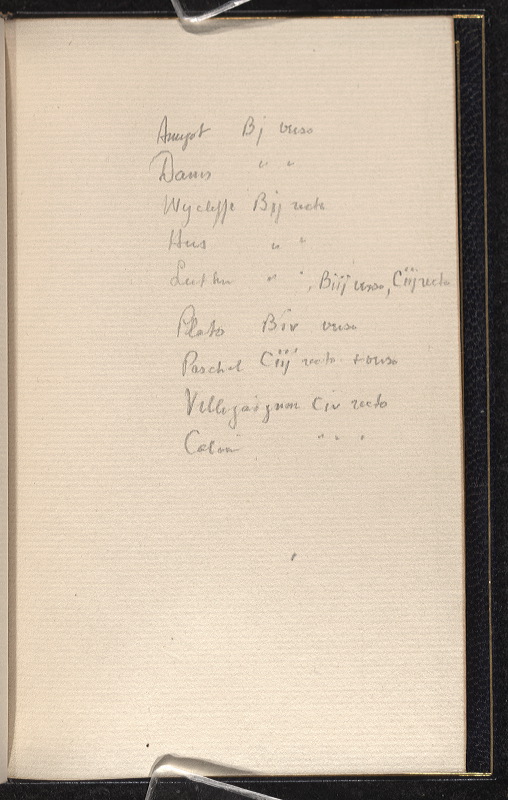 Amyot Bj verso
Danis " "
Wycliffe Bij recto
Hus " "
Luther " ", Biij verso, Ciij recto
Plato Biv verso
Paschal Ciij recto + verso
Villegaignon Civ recto
Calvin " " "